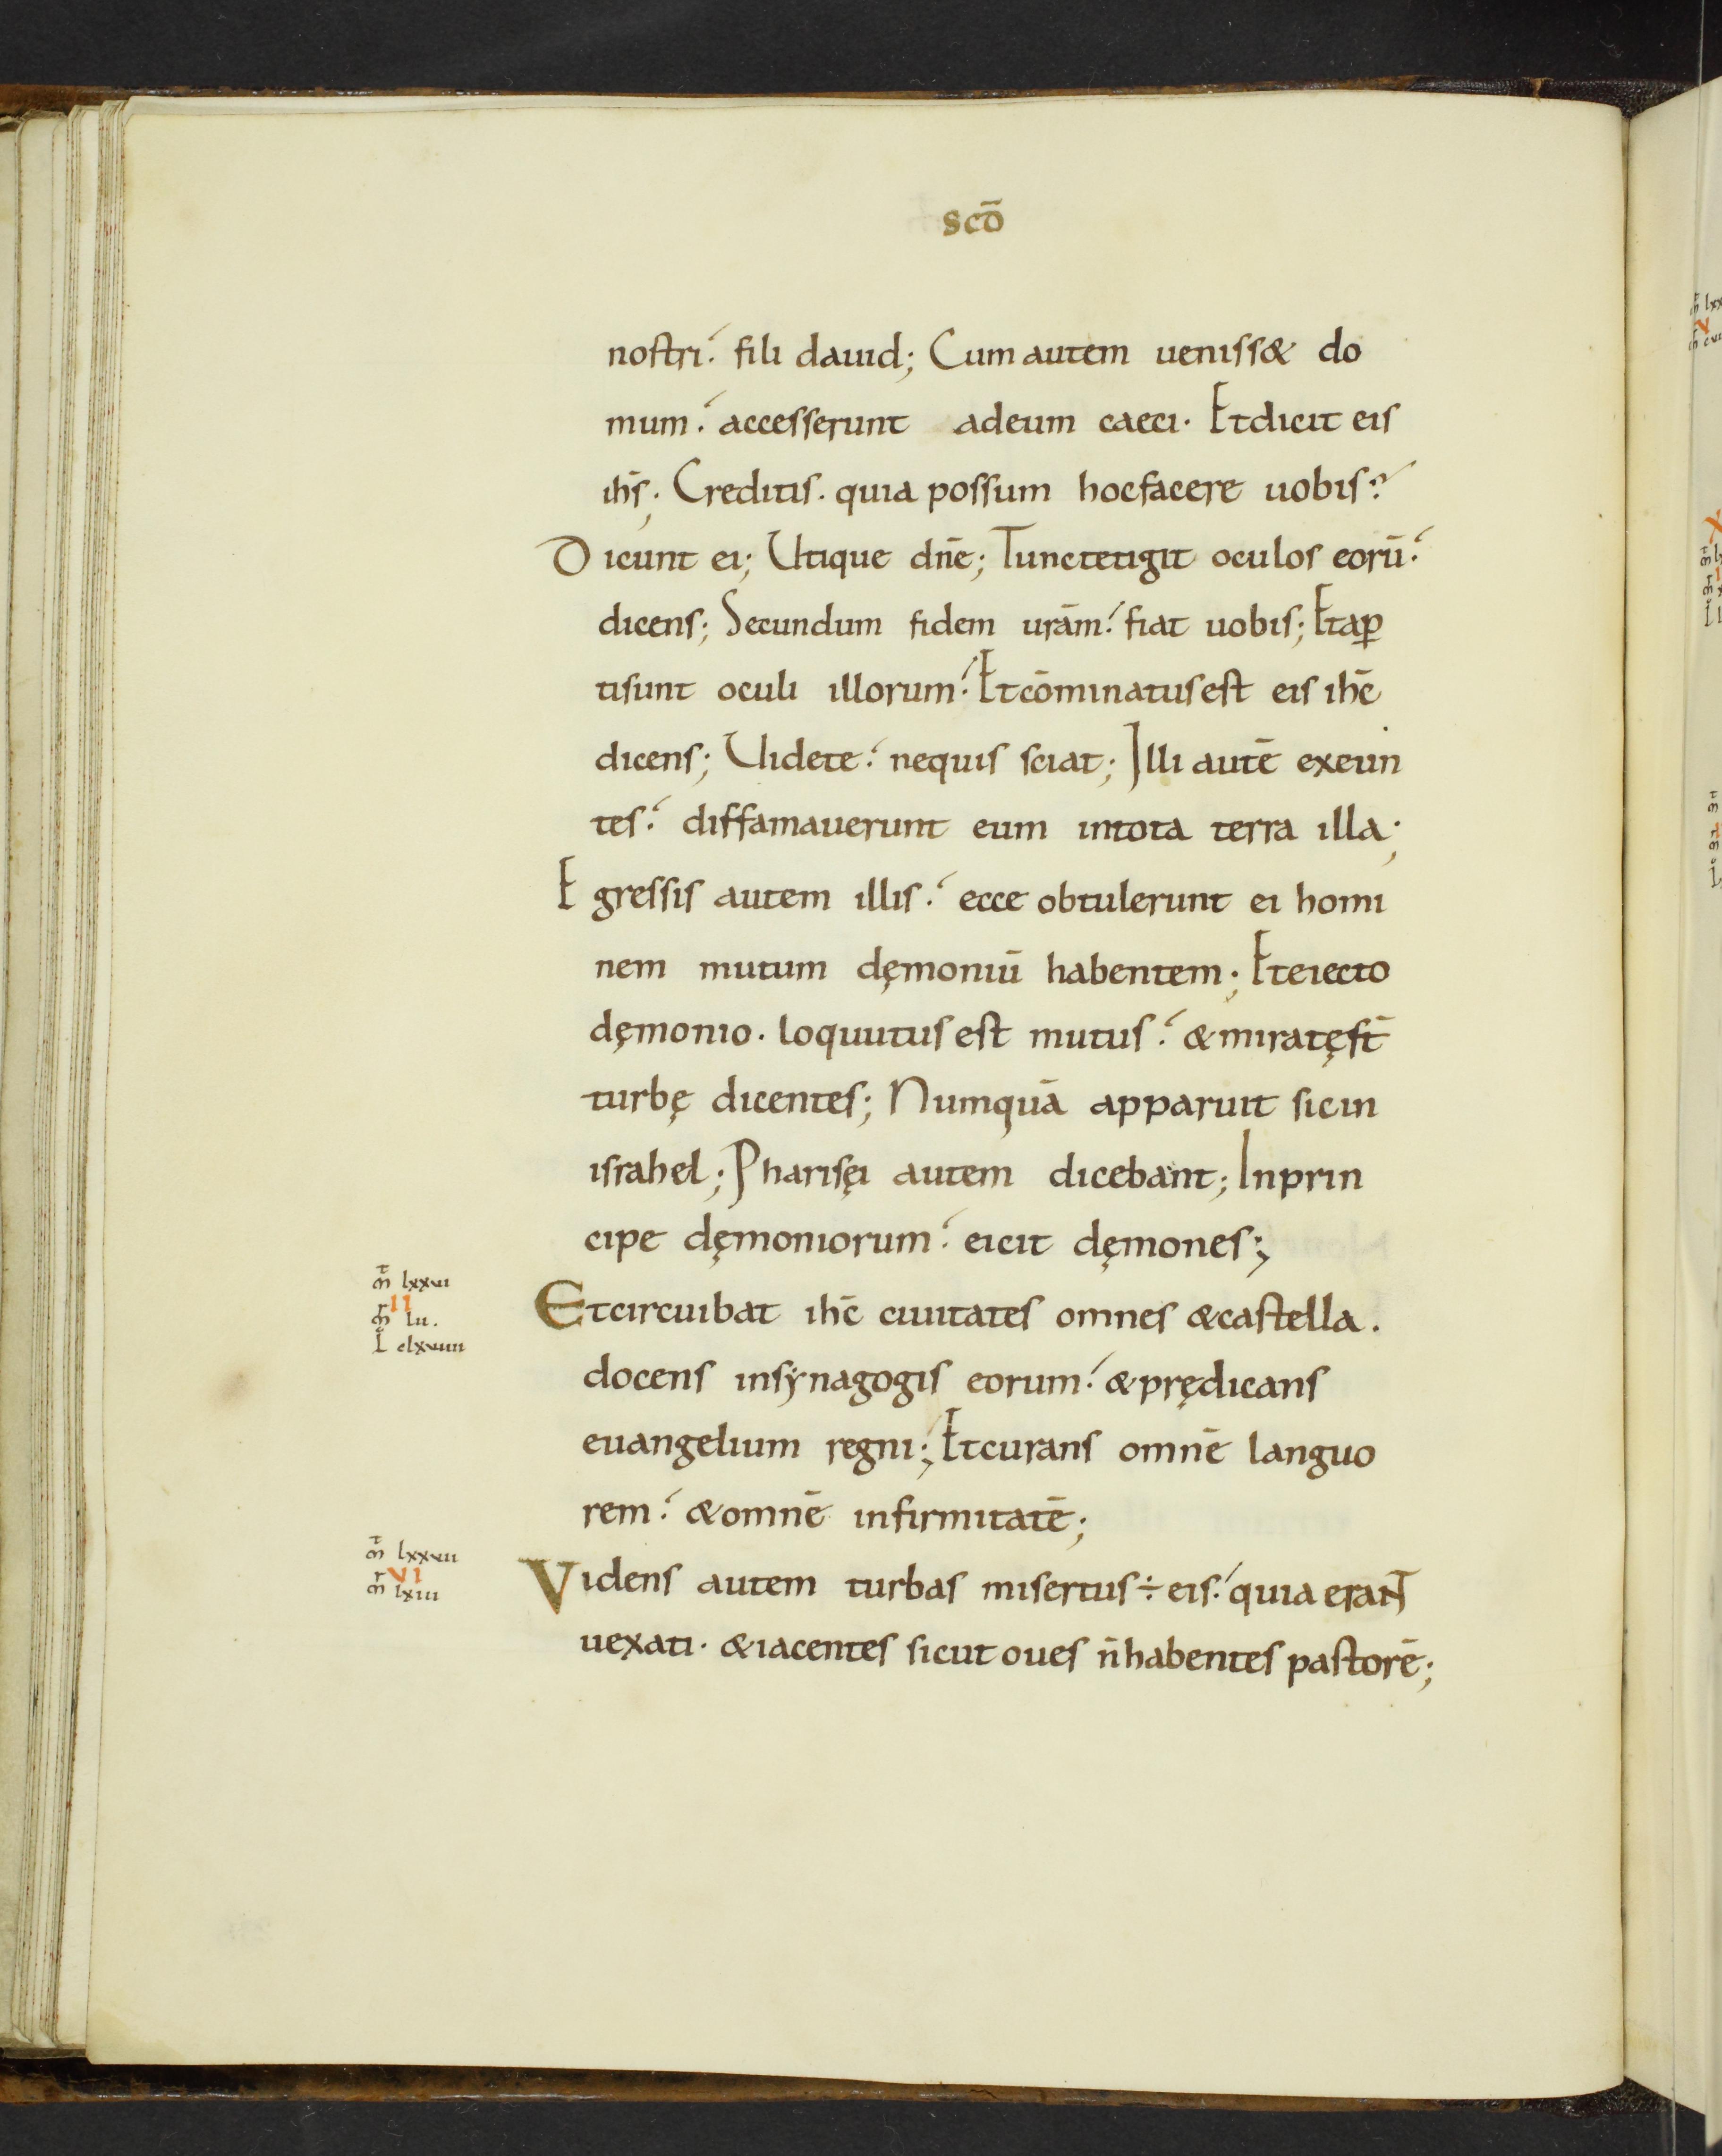 scō
nostri. fili dauid; Cum autem ueniss& do
mum. accesserunt adeum caeci. Etdicit eis
ihs; Creditis. quia possum hocfacere uobis?
Dicunt ei; Utique dn̄e; Tunctetigit oculos eorū.
dicens; Secundum fidem urām. fiat uobis; Etap̲
tisunt oculi illorum. Etcōminatusest eis ihc̄
dicens; Uidete. nequis sciat; Illi autē exeun
tes. diffamauerunt eum intota terra illa;
Egressis autem illis. ecce obtulerunt ei homi
nem mutum dęmoniū habentem; Eteiecto
dęmonio. loquutus est mutus. &miratęst̄
turbę dicentes; Numquā apparuit sicin
israhel; Pharisęi autem dicebant; Inprin
cipe dęmoniorum. eicit dęmones;
m̄ lxxvi
II
m̄r lii.
L clxviiii
Etcircuibat ihc̄ ciuitates omnes &castella.
docens insẏnagogis eorum. &prędicans
euangelium regni; Etcurans omnē languo
rem. &omnē infirmitatē;
m̄ lxxvii
VI
m̄r lxiii
Videns autem turbas misertus÷ eis. quia erant
uexati. &iacentes sicut oues n̄habentes pastorē;